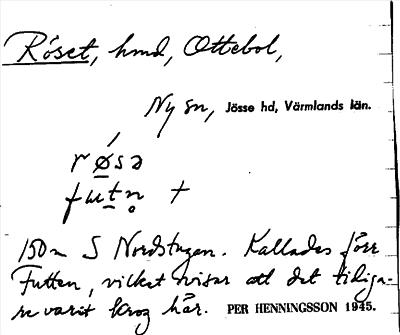 Röset, hmd, Ottebol,
Ny sn, Jösse hd, Värmlands län.
røsə
futn̥ +
150 m S Nordstugan. Kallades förr
Futten, vilket visar att det tidiga-
re varit krog här. PER HENNINGSSON 1945.